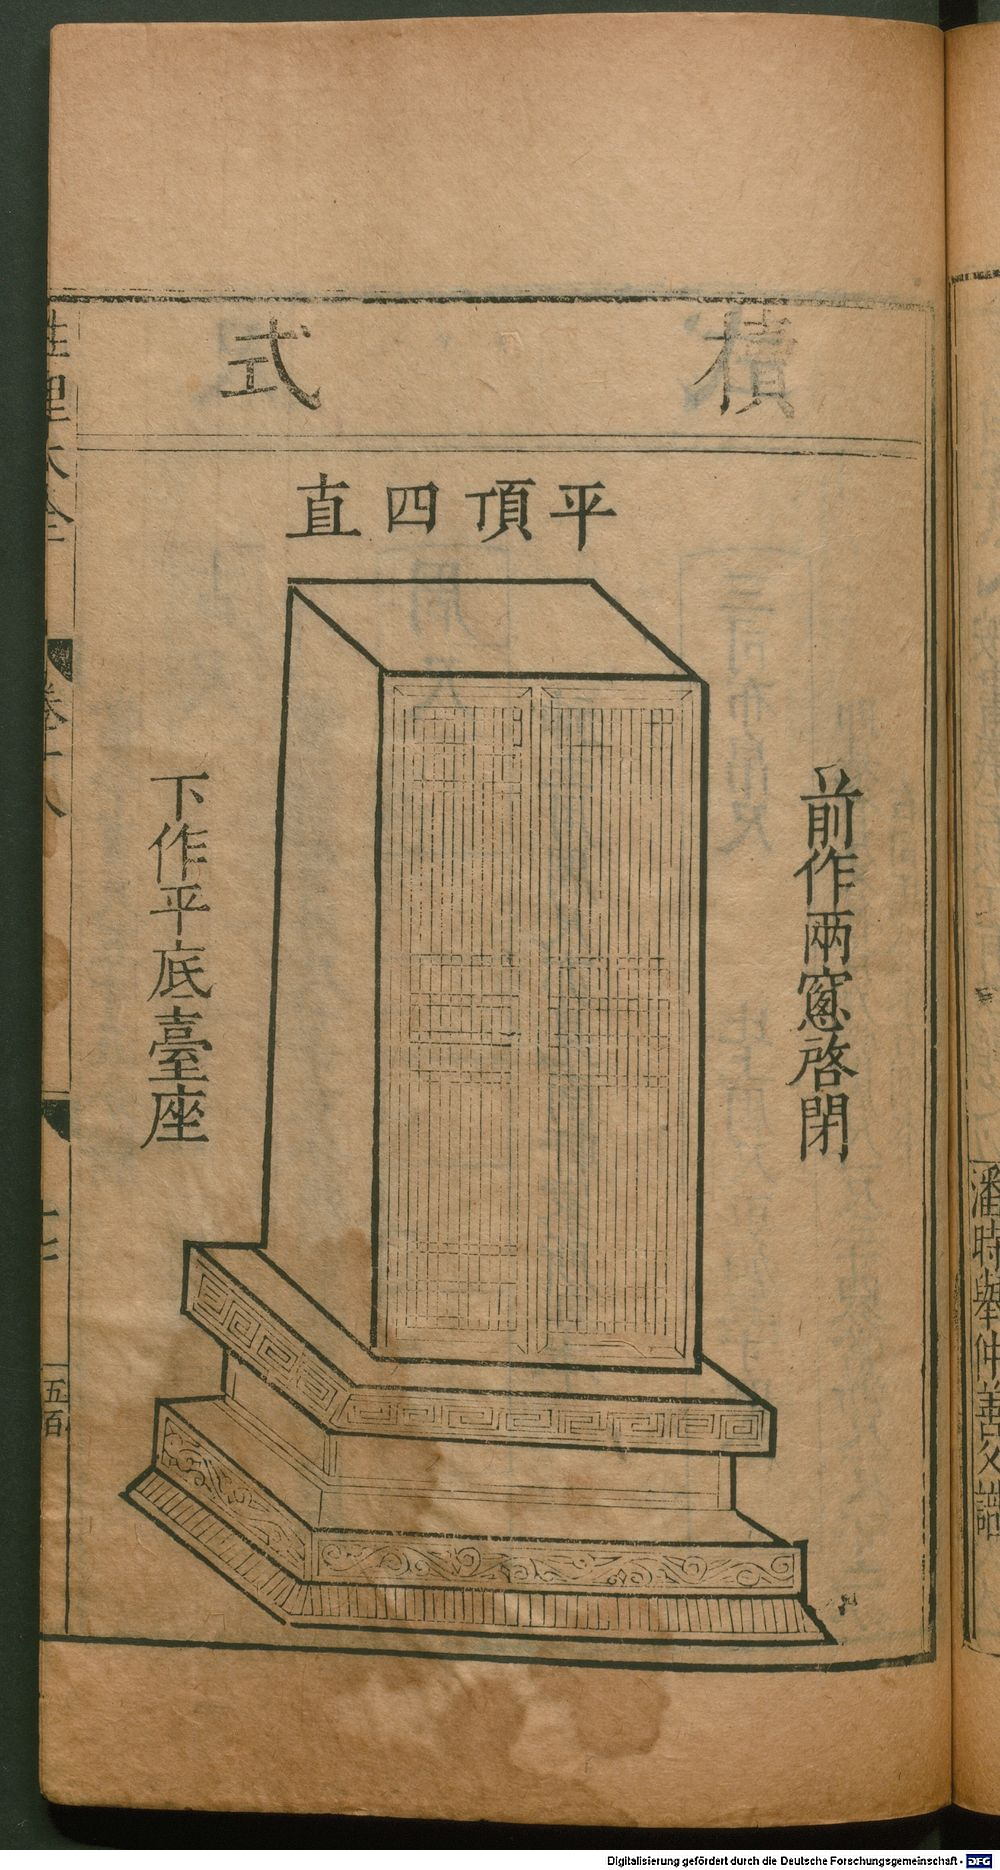 櫝式
平頂四直
前作兩窻啓閉
下作平底臺座
性理大全
卷十八
五百
潘時舉仲善父識
Digitalisierung gefördert durch die Deutsche Forschungsgemeinschaft - DFG